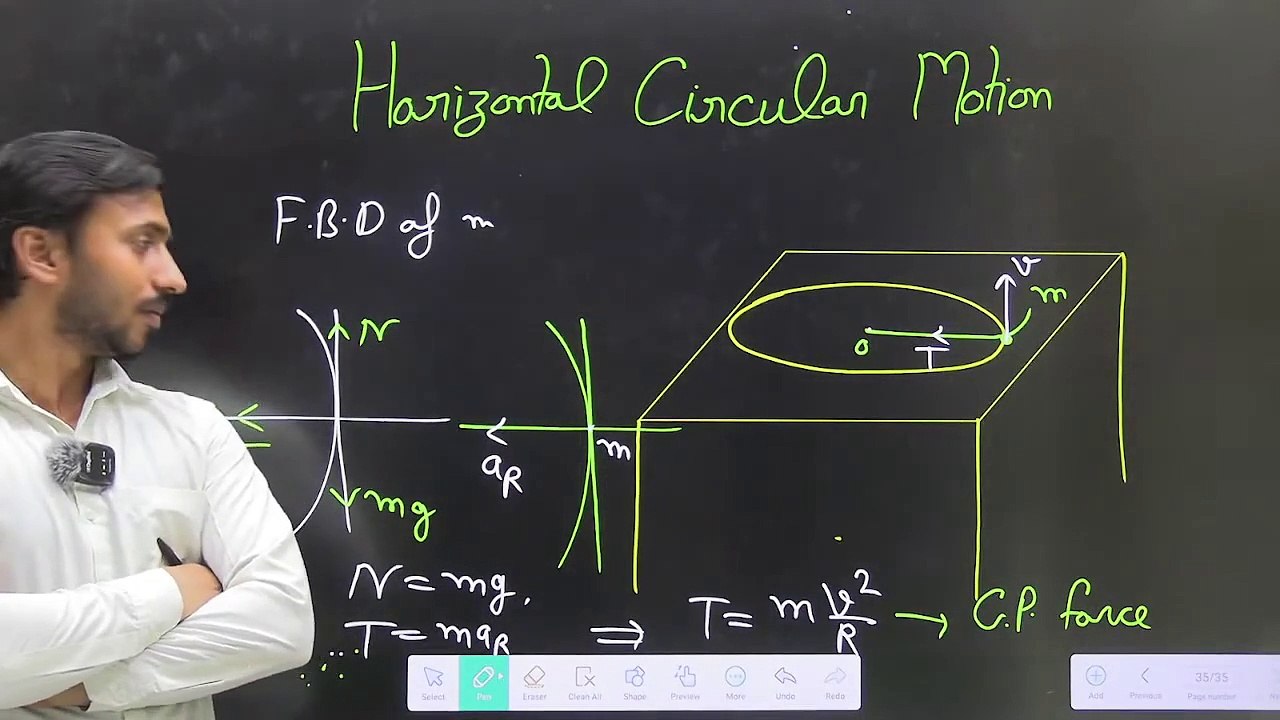 Horizontal Circular Motion
F.B.D of m
v
m
N
o
T
m
a_R
mg
N = mg,
T = ma_R ⇒ T = m v²/R → C.P. force
Select Pen Eraser Clean All Shape Preview More Undo Redo
Add Previous 35/35 Page number